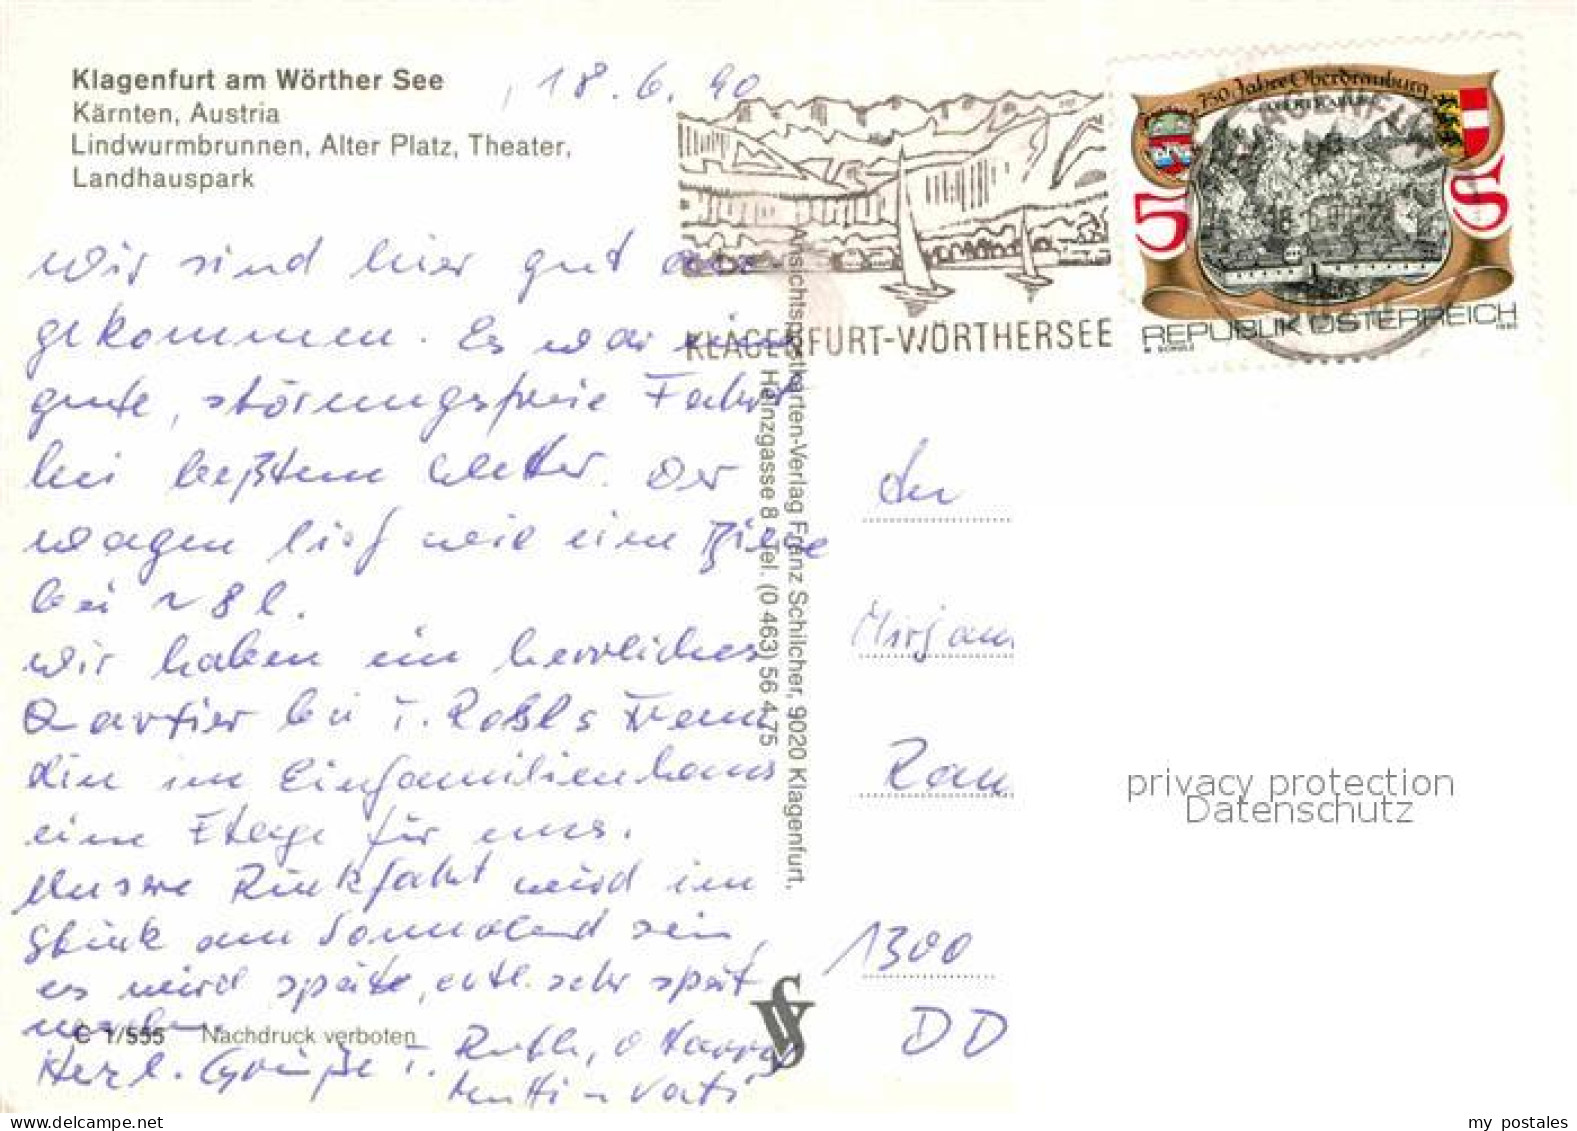 Klagenfurt am Wörther See
Kärnten, Austria
Lindwurmbrunnen, Alter Platz, Theater,
Landhauspark
18.6.90
wir sind hier gut an
gekommen. Es war eine
gute, störungsfreie Fahrt
bei Wetter. Der
wagen lief wie eine Biene
bei ~ 8 l.
wir haben ein herrliches
Quartier bei T. Freun
din im Einfamilienhaus
eine Etage für uns.
Unsere Rückfahrt wird im
Stück am Sonnabend sein,
es wird spät, evtl. sehr spät
werden.
Herzl. Grüße T. Ruth, O Harry
Mutti u Vati
C 1/555 Nachdruck verboten
Ansichtspostkarten-Verlag Franz Schilcher, 9020 Klagenfurt,
Heinzgasse 8 - Tel. (0 463) 56 4 75
KLAGENFURT-WÖRTHERSEE
750 Jahre Oberdrauburg
5 S
REPUBLIK ÖSTERREICH
1990
An
Mirjam
1300
DD
privacy protection
Datenschutz
my postales